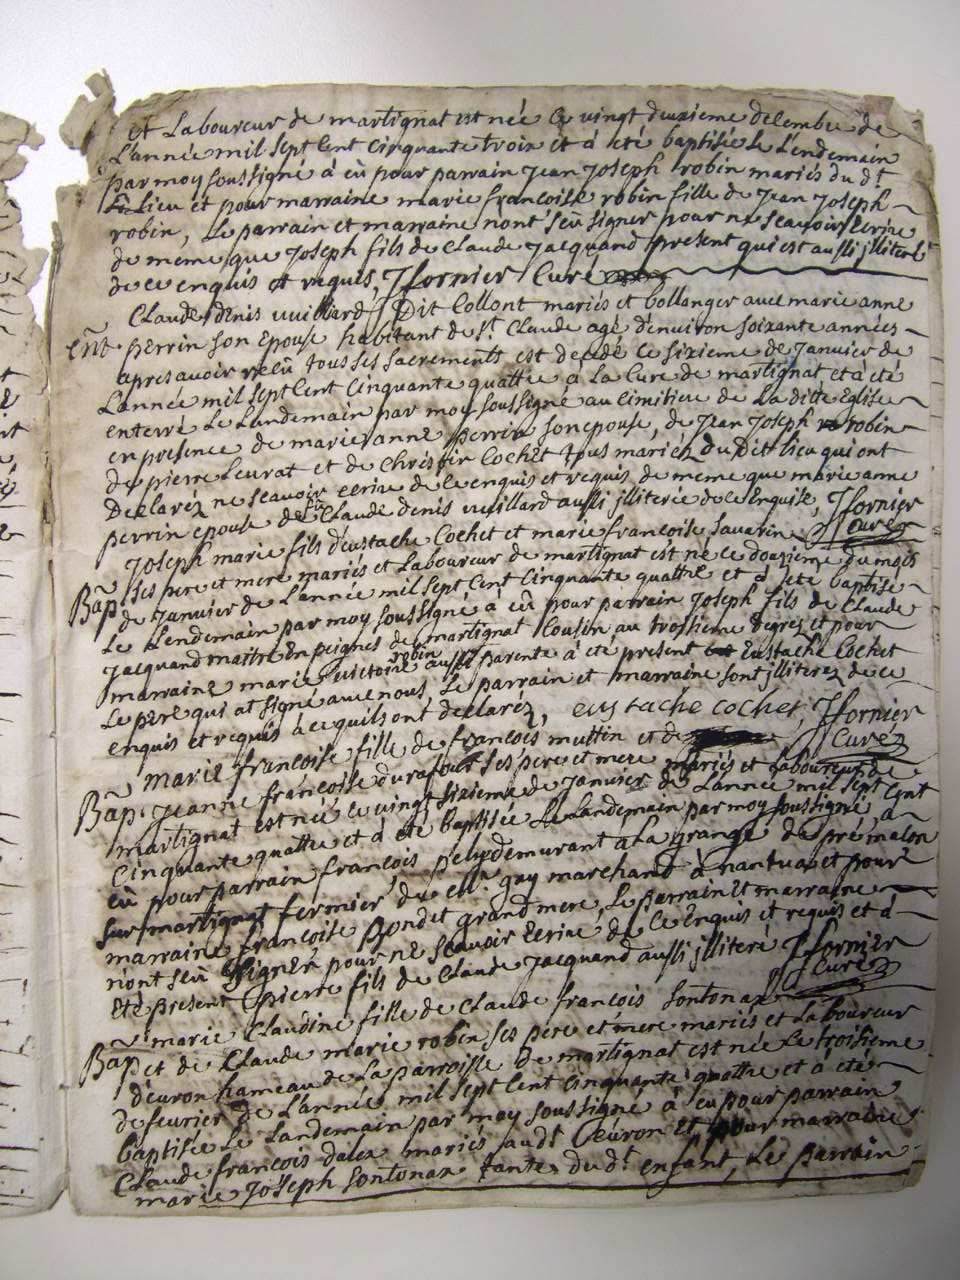 et Laboureur de martignat est née Ce vingt deuxieme decembre de
L'année mil sept Cent cinquante troix et à eté baptisée Le Lendemain
par moy soussigné à eü pour parrain Jean Joseph robin mariés du dt
Lieu et pour marraine marie francoise robin fille de Jean Joseph
robin, Le parrain et marraine n'ont seü signer pour ne Scauoir Ecrire
de meme que Joseph fils de Claude Jacquand present qui est aussi jlliteré
de ce enquis et requis, Jfornier Curé
Claude denis vuillard Dit Collont mariés et bollanger auec marie anne
Ent. perrin son Epouse habitant de St. Claude agé d'enuiron soixante années
apres auoir reçû tous ses sacrements est decedé ce sixieme de Januier de
L'année mil sept Cent Cinquante quattre à La Cure de martignat et à eté
enterré Le Lendemain par moy soussigné au Cimitiere de La ditte Eglise
en presence de marie anne perrin son epouse, de Jean Joseph robin
de pierre Leurat et de Cochet tous mariéz du Dit lieu qui ont
Declaréz ne scauoir ecrire de ce enquis et requis de meme que marie anne
perrin epouse de Claude denis vuillard aussi jlliterée de ce Enquise, Jfornier
Curéz
Joseph marie fils d'eustache Cochet et marie francoise Sauarin
Bap. ses pere et mere mariés et Laboureur de martignat est né ce douzieme du mois
de Januier de L'année mil sept Cent Cinquante quattre et à eté baptisé
Le Lendemain par moy soussigné à eü pour parrain Joseph fils de Claude
Jacquand maitre En peignes de martignat Cousin au troisieme degrez et pour
marraine marie robin aussi parente à eté present Eustache Cochet
Le pere qui at signé auec nous, Le parrain et marraine sont jlliterez de ce
enquis et requis à ce quils ont declaréz, eustache cochet, Jfornier
Curéz
marie francoise fille de francois muttin et de
Bap. Jeanne francoise durafour ses père et mere mariés et Laboureur de
martignat est née ce vingt sixieme de Januier de L'année mil sept Cent
Cinquante quattre et à eté baptisée Le Landemain par moy soussigné, à
eü pour parrain francois demurant a La grange de pré malon
sur martignat fermier du guy marchand à nantua et pour
marraine francoise Bondet grand mere, Le parrain et marraine
n'ont seü signér pour ne Scauoir Ecrire de Ce Enquis et requis et à
Eté present pierre fils de Claude Jacquand aussi jlliteré Jfornier
Curéz
marie Claudine fille de Claude francois Sontonax
Bap. et de Claude marie robin ses père et mere mariés et Laboureur
d'euron hameau de La parroisse de martignat est née Le troisieme
de feurier de L'année mil sept Cent Cinquante quattre et à eté
baptisée Le Landemain par moy soussigné à eu pour parrain
Claude francois dalex mariés au dt euron et pour marraine
marie Joseph Sontonax tante du dt enfant, Le parrain